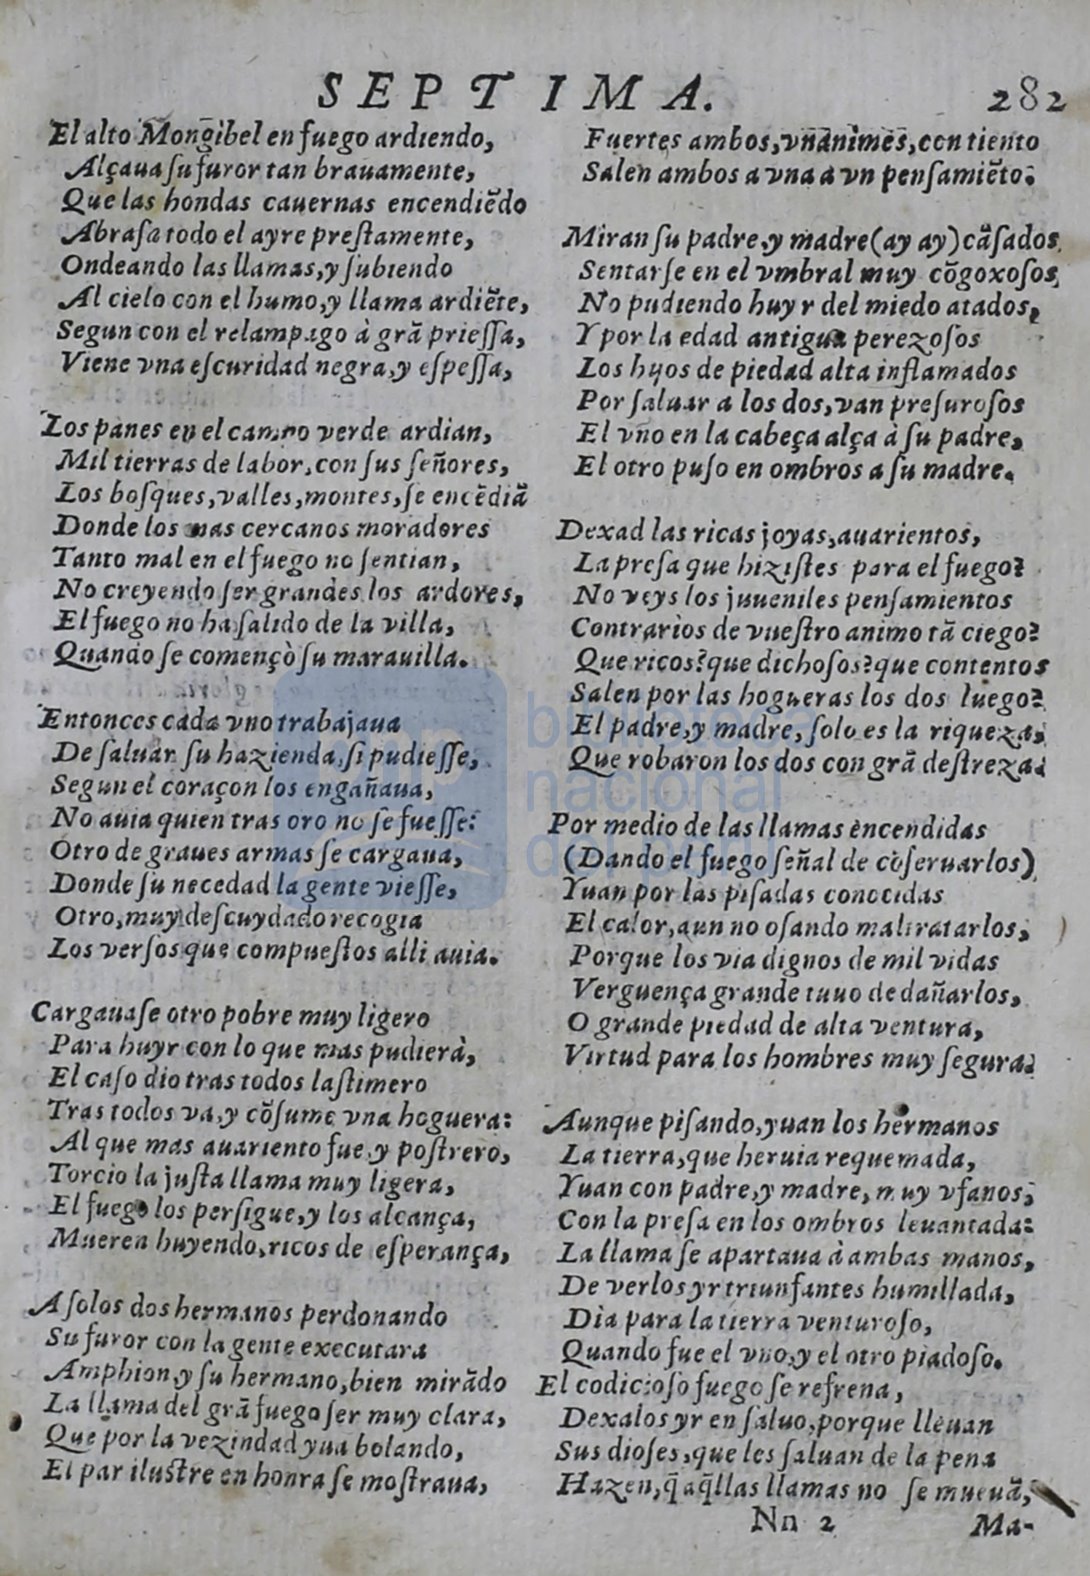 SEPTIMA. 282
El alto Mongibel en fuego ardiendo,
Alçaua ſu furor tan brauamente,
Que las hondas cauernas encendiẽdo
Abraſa todo el ayre preſtamente,
Ondeando las llamas, y ſubiendo
Al cielo con el humo, y llama ardiẽte,
Segun con el relampago à grã prieſſa,
Viene vna eſcuridad negra, y eſpeſſa,
Los panes en el campo verde ardian,
Mil tierras de labor, con ſus ſeñores,
Los boſques, valles, montes, ſe encẽdiã
Donde los mas cercanos moradores
Tanto mal en el fuego no ſentian,
No creyendo ſer grandes los ardores,
El fuego no ha ſalido de la villa,
Quando ſe començò ſu marauilla.
Entonces cada vno trabajaua
De ſaluar ſu hazienda, ſi pudieſſe,
Segun el coraçon los engañaua,
No auia quien tras oro no ſe fueſſe:
Otro de graues armas ſe cargaua,
Donde ſu necedad la gente vieſſe,
Otro, muy deſcuydado recogia
Los verſos que compueſtos alli auia.
Cargauaſe otro pobre muy ligero
Para huyr con lo que mas pudierà,
El caſo dio tras todos laſtimero
Tras todos va, y cõſume vna hoguera:
Al que mas auariento fue, y poſtrero,
Torcio la juſta llama muy ligera,
El fuego los perſigue, y los alcança,
Mueren huyendo, ricos de eſperança,
A ſolos dos hermanos perdonando
Su furor con la gente executara
Amphion, y ſu hermano, bien mirãdo
La llama del grã fuego ſer muy clara,
Que por la vezindad yua bolando,
El par iluſtre en honra ſe moſtraua,
Fuertes ambos, vnánimes, con tiento
Salen ambos a vna a vn penſamiẽto:
Miran ſu padre, y madre (ay ay) cãſados
Sentarſe en el vmbral muy cõgoxoſos,
No pudiendo huyr del miedo atados,
Y por la edad antigua perezoſos
Los hijos de piedad alta inflamados
Por ſaluar a los dos, van preſuroſos
El vno en la cabeça alça à ſu padre,
El otro puſo en ombros a ſu madre.
Dexad las ricas joyas, auarientos,
La preſa que hiziſtes para el fuego?
No veys los juueniles penſamientos
Contrarios de vueſtro animo tã ciego?
Que ricos? que dichoſos? que contentos
Salen por las hogueras los dos luego?
El padre, y madre, ſolo es la riqueza,
Que robaron los dos con grã deſtreza.
Por medio de las llamas encendidas
(Dando el fuego ſeñal de cõſeruarlos)
Yuan por las piſadas conocidas
El calor, aun no oſando maltratarlos,
Porque los via dignos de mil vidas
Verguença grande tuuo de dañarlos,
O grande piedad de alta ventura,
Virtud para los hombres muy ſegura.
Aunque piſando, yuan los hermanos
La tierra, que heruia requemada,
Yuan con padre, y madre, muy vfanos,
Con la preſa en los ombros leuantada:
La llama ſe apartaua à ambas manos,
De verlos yr triunfantes humillada,
Dia para la tierra venturoſo,
Quando fue el vno, y el otro piadoſo.
El codicioſo fuego ſe refrena,
Dexalos yr en ſaluo, porque lleuan
Sus dioſes, que les ſaluan de la pena
Hazen, q̃ aq̃llas llamas no ſe mueuã,
Nn 2 Ma-
biblioteca
nacional
del perú